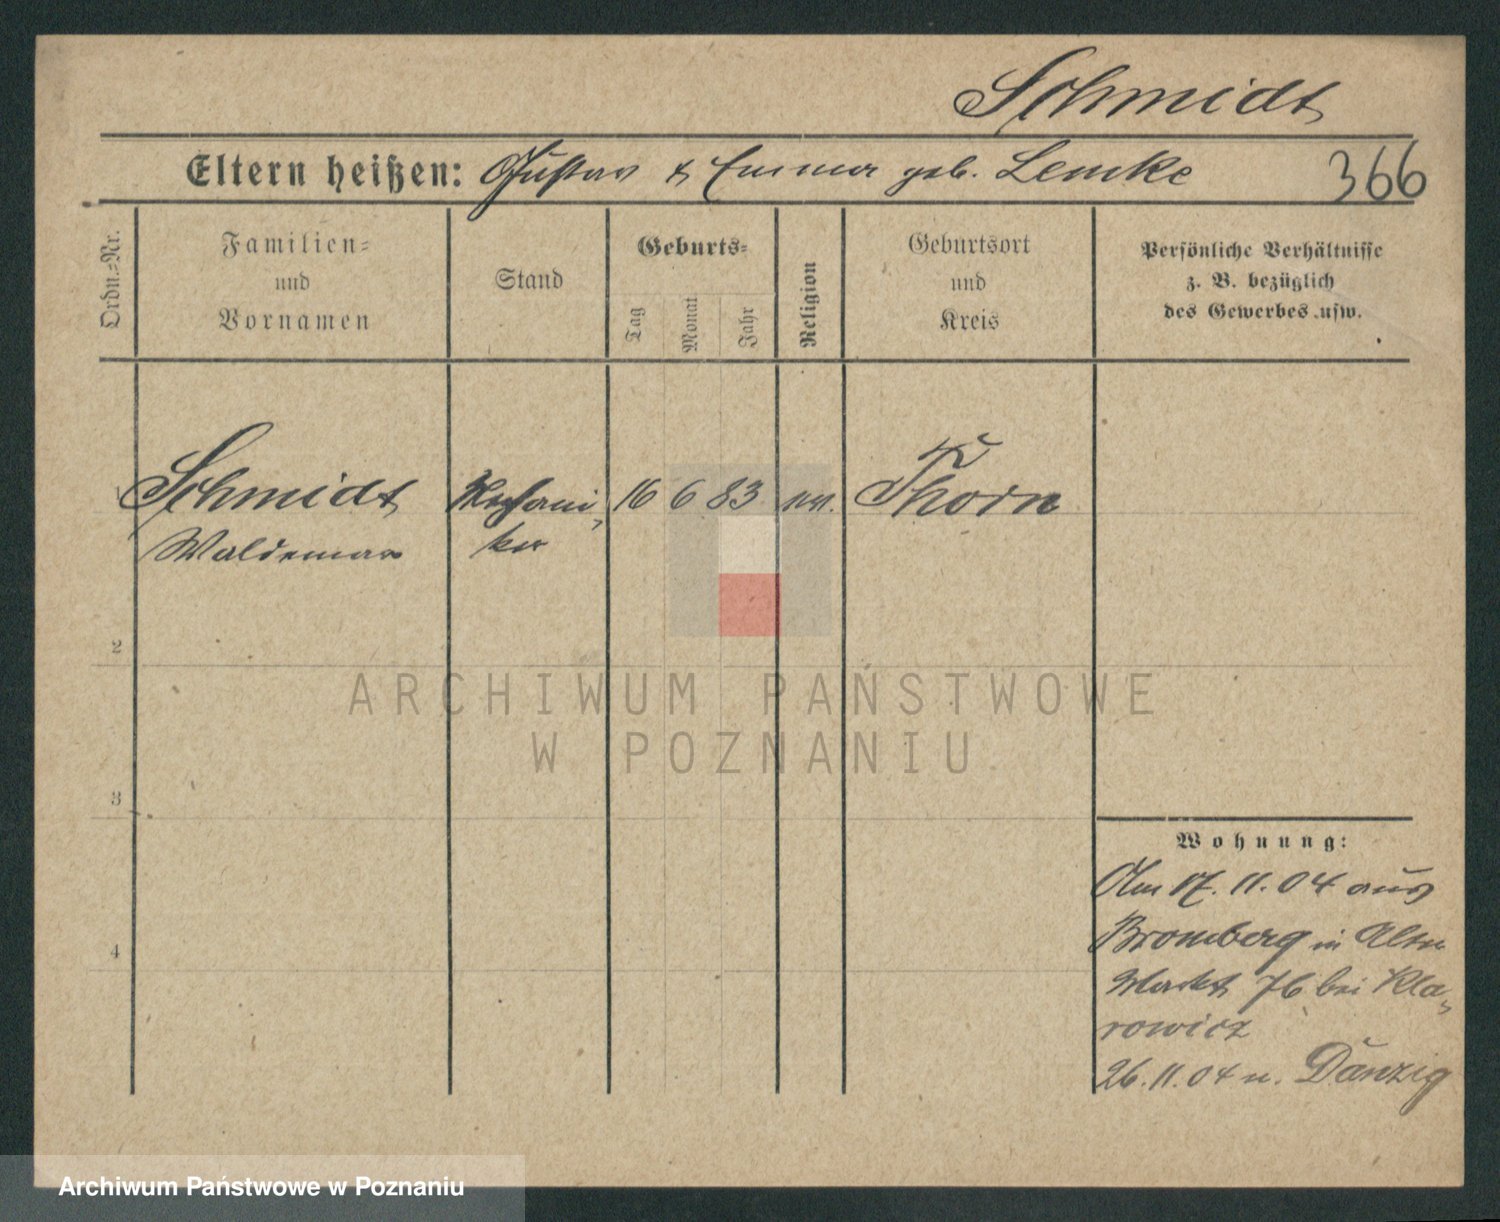 Schmidt
Eltern heißen: Gustav & Emma geb. Lemke 366
Ordn.=Nr.
Familien=
und
Vornamen
Stand
Geburts=
Tag
Monat
Jahr
Religion
Geburtsort
und
Kreis
Persönliche Verhältnisse
z. B. bezüglich
des Gewerbes usw.
Schmidt Mechani- 16 6 83 ev. Thorn
Waldemar ker
2
ARCHIWUM PAŃSTWOWE
W POZNANIU
3
Wohnung:
Am 17. 11. 04 aus
Bromberg in Alter
4
Markt 76 bei Kla-
rowicz
26. 11. 04 n. Danzig
Archiwum Państwowe w Poznaniu